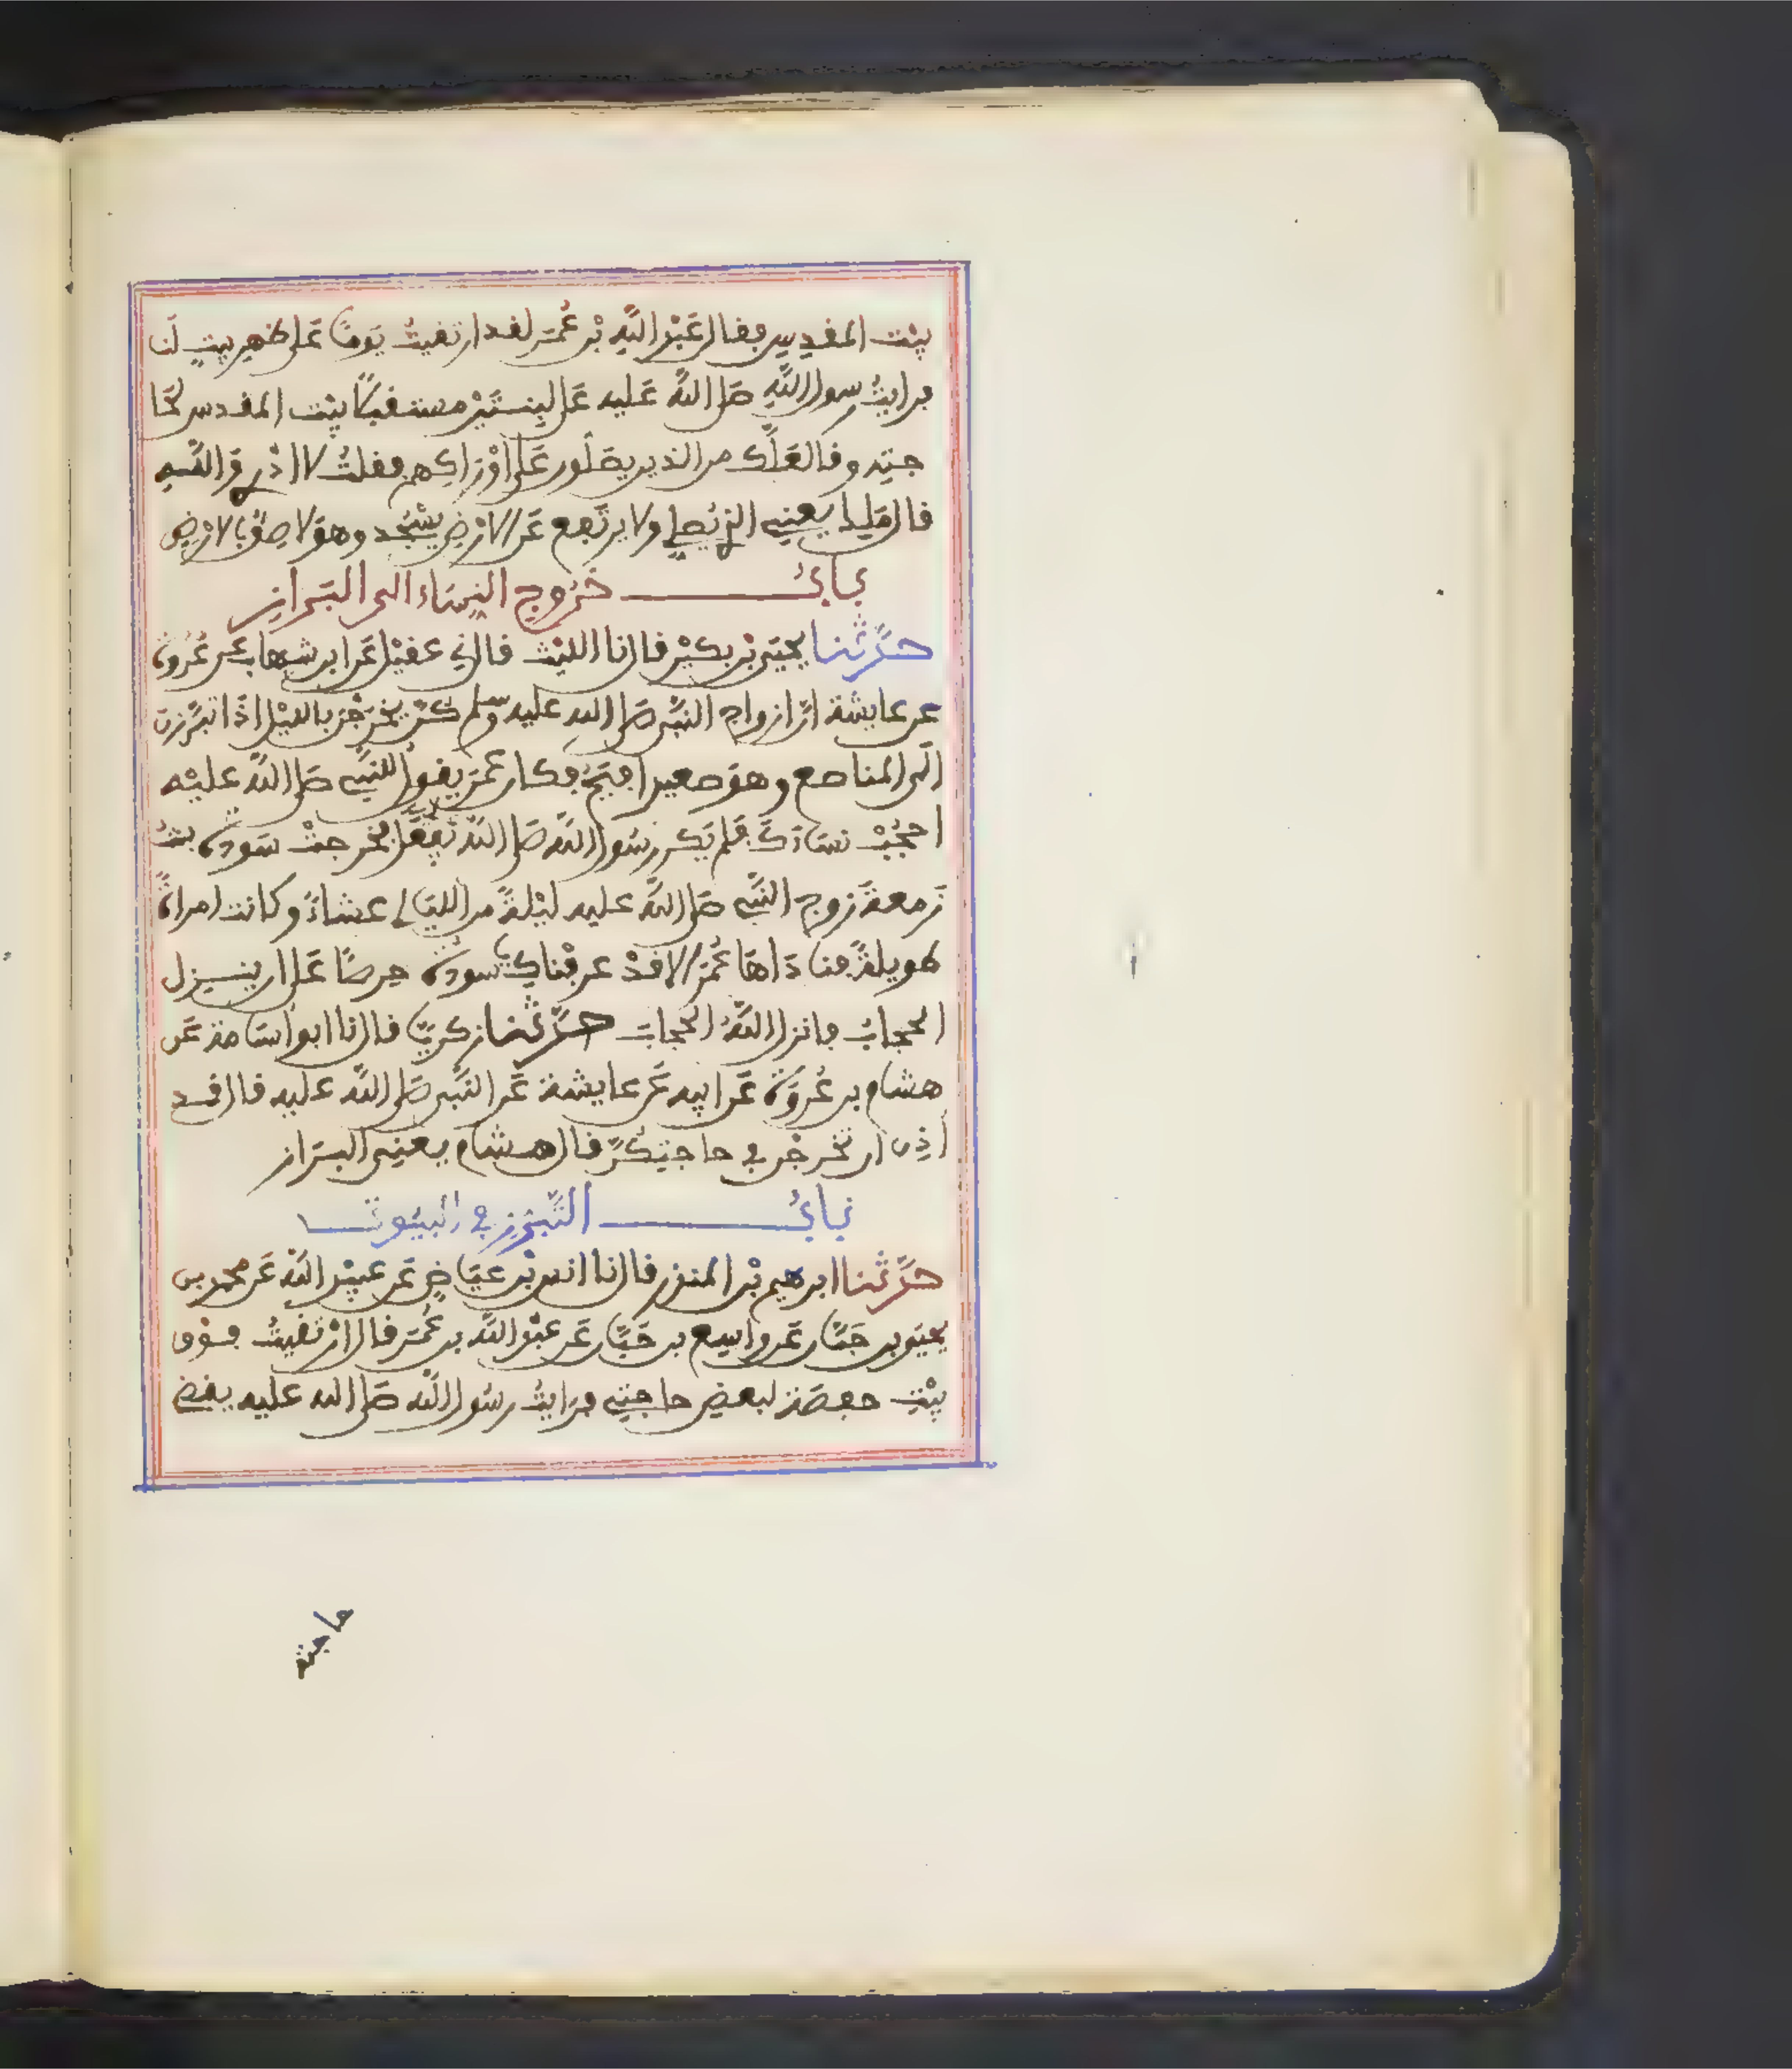 بيْت المقدِسِ فقال عَبْدُ اللّهِ بْن عُمَر لقد ارتقيتُ يَوماً عَلى ظهرِ بيتٍ لَنا
فرايتُ رسولَ اللّهِ صَلى اللّهُ عَليه عَلى لبِنـتَيْن مستقبلاً بيْت المقدس لحَا
جتِه وقال لعَلَّك من الذين يصَلّون عَلى اوْرَاكِهم فقلتُ لا ادْرِي وَاللّهِ
قال مَلِك يعنِي الذِي يُصلِّي ولا يرتَفِع عَن الارْضِ يسْجُد وهوَ لاصِقٌ بالارْضِ
بابُ خُروجِ النِساء الى البَرازِ
حدَّثنا يحيَى بْن بكيْر قال نا الليْث قال ني عقيْل عَن ابن شهاب عن عُرْوة
عن عايشة انّ ازواج النبّي صَلى الله عليه وسلم كنّ يخرجْن بالليْل اذَا تبرَّزن
الَى المناصع وهوَ صعيد افيَح فكان عمَر يقول للنبّي صَلى اللّه عليْه
احجُبْ نسَاءَكَ فلم يَكن رسُول اللّه صَلى اللّه يَفعَل فخرجتْ سَودة بنتُ
زَمعة زوج النبّي صَلى اللّه عليه ليْلةً من الليَالي عشاءً وكانت امراةً
طويلةً فنادَاهَا عُمَر الا قدْ عرفْناكِ يا سودة حِرصاً عَلى ان ينـزل
الحجابُ فانزل اللّهُ الحجابَ حدَّثنا زكريّا قال نا ابو اسَامة عَن
هشام بن عُروَة عَن ابيه عَن عايشة عَن النبّي صَلى اللّه عليه قال قـد
اذِن ان تخرجْن في حاجتِكُنّ قال هشام يعني البرَاز
بابُ التَّبَرُّز في البيُوتِ
حدَّثنا ابرهيم بْن المنذر قال نا انس بْن عيَاضٍ عَن عبيْد اللّه عَن محمد بن
يحيَى بن حَبَّان عَن واسِع بن حَبَّان عَن عبْد اللّه بن عُمَر قال ارْتقيتُ فـوْق
بيْتِ حفصَة لبعض حاجتِي فرَايتُ رسُول اللّه صَلى الله عليه يقضي
حاجته